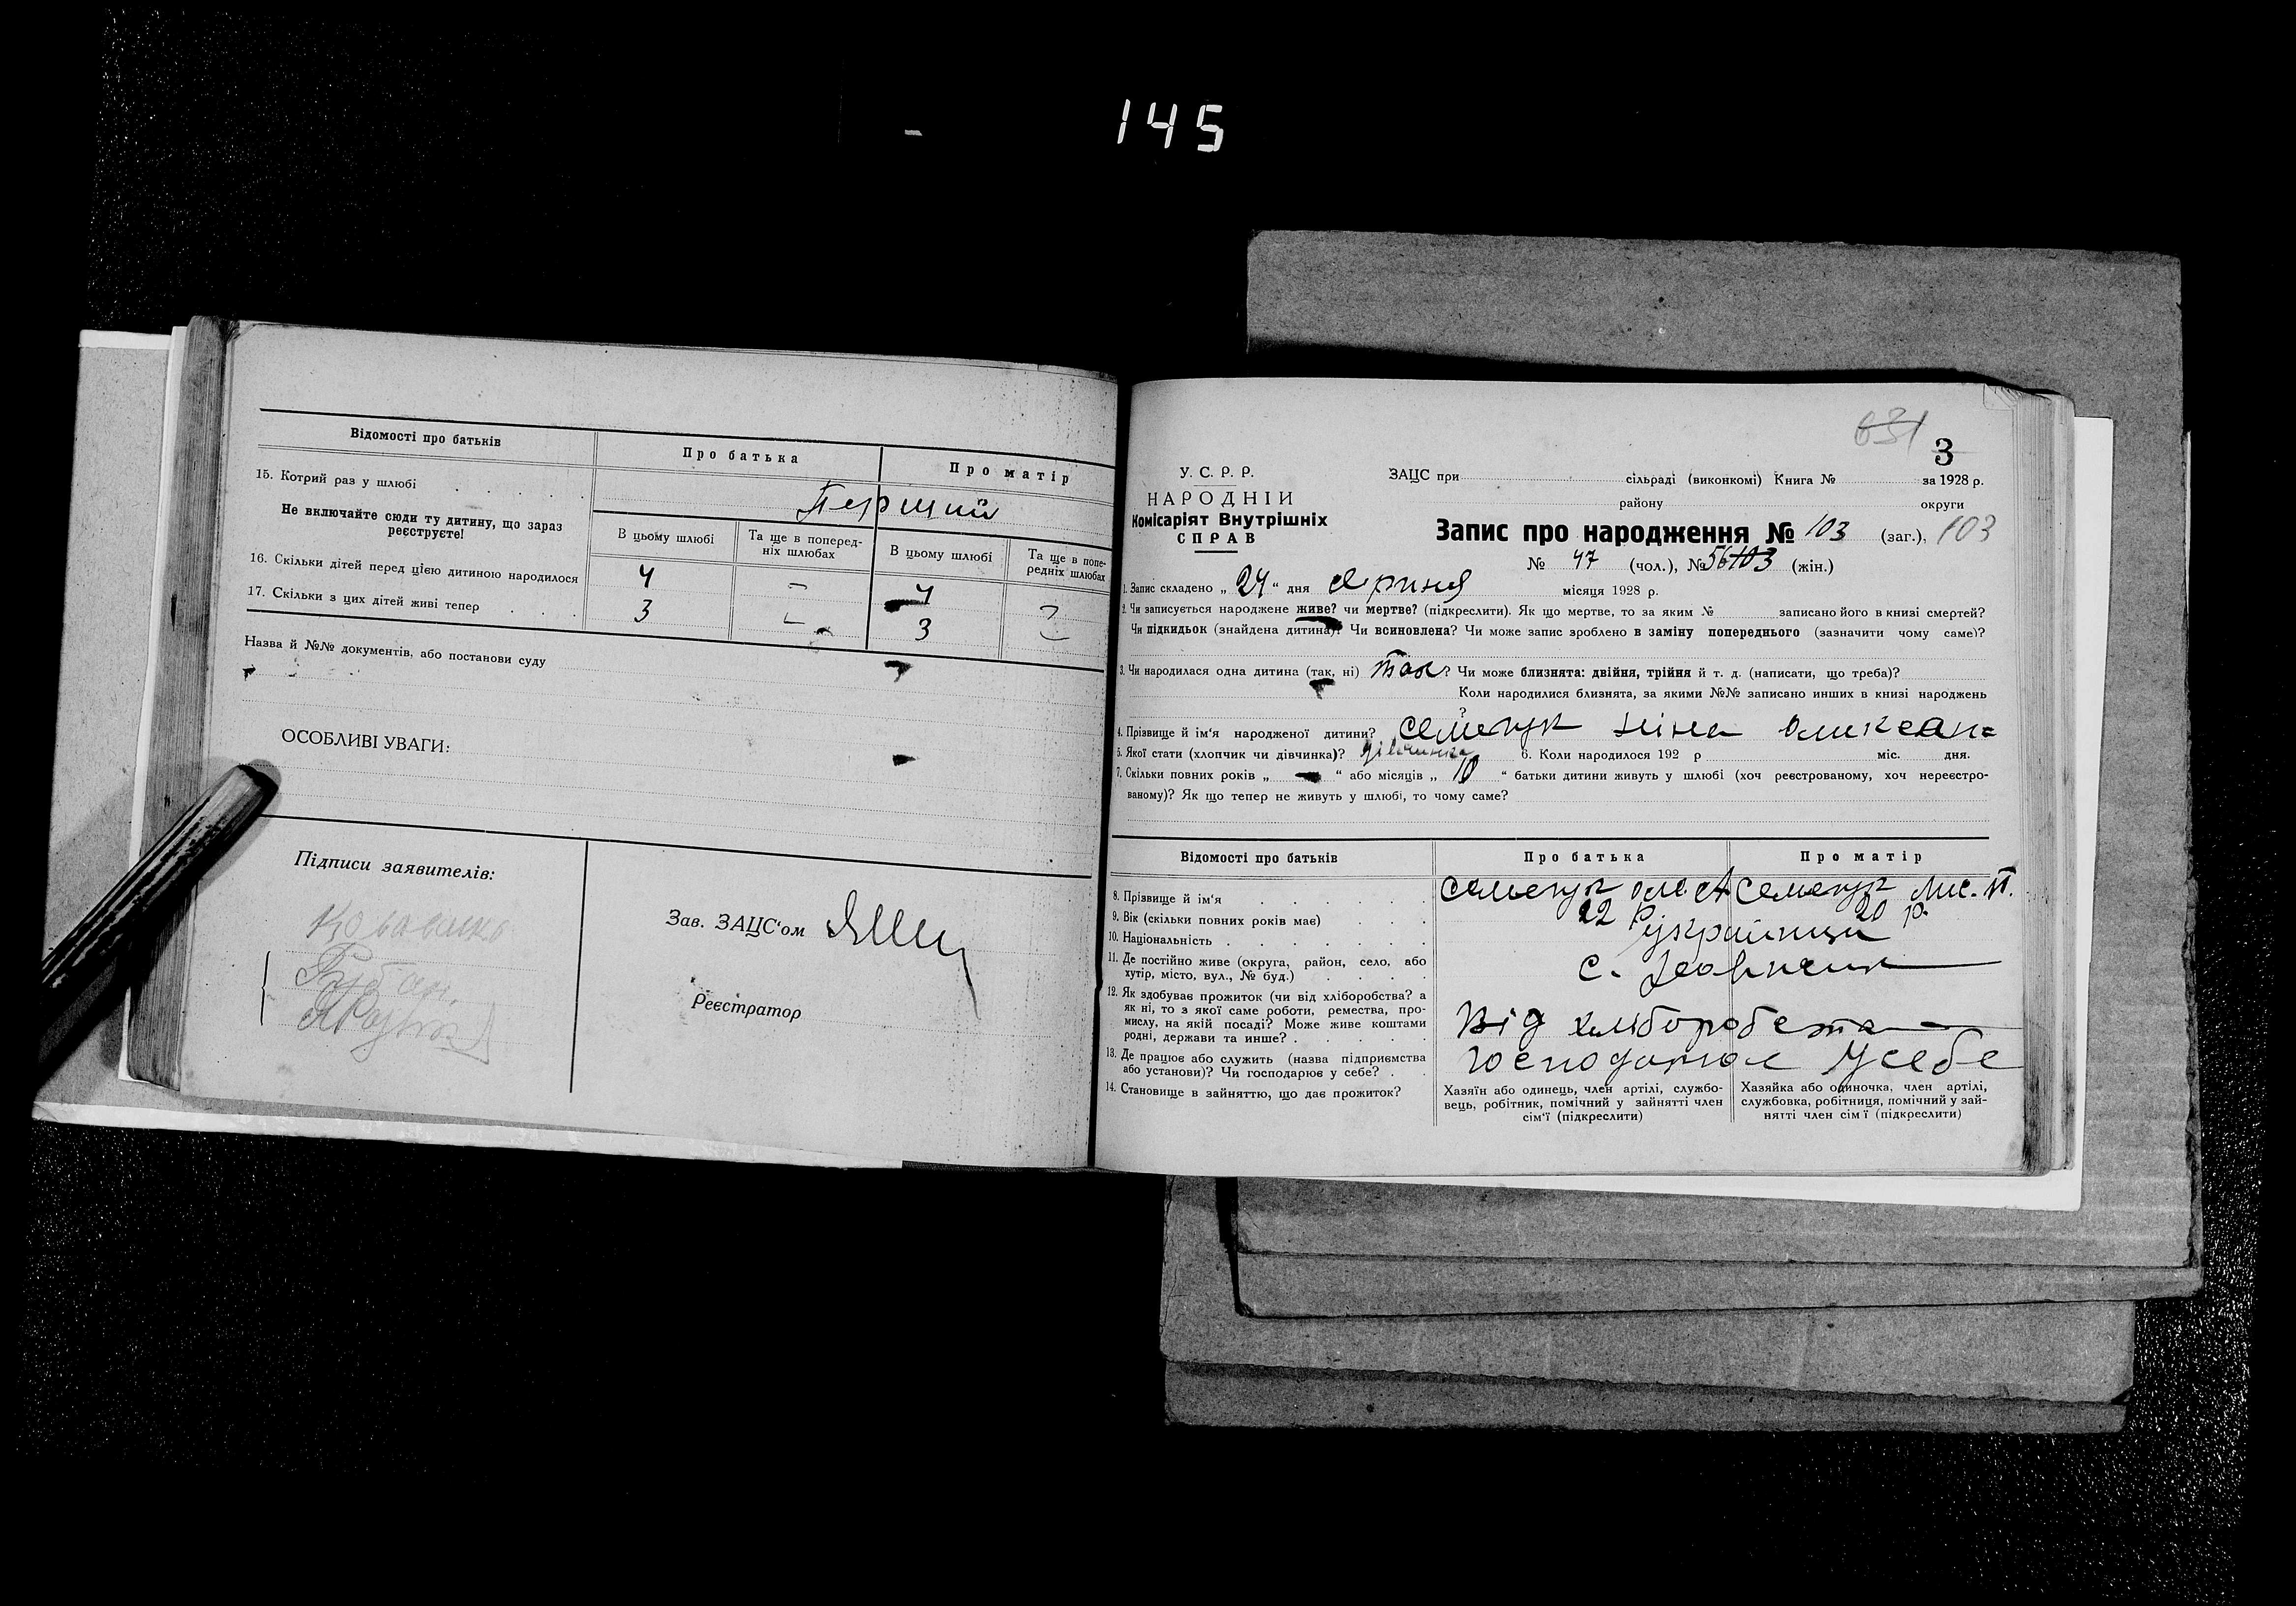 145
Відомості про батьків
Про батька
Про матір
15. Котрий раз у шлюбі
Перший
Не включайте сюди ту дитину, що зараз
реєструєте!
В цьому шлюбі
Та ще в поперед-
ніх шлюбах
В цьому шлюбі
Та ще в попе-
редніх шлюбах
16. Скільки дітей перед цією дитиною народилося 4 – 4
17. Скільки з цих дітей живі тепер 3 3
Назва й №№ документів, або постанови суду
ОСОБЛИВІ УВАГИ:
Підписи заявителів:
Зав. ЗАЦС'ом
Реєстратор
3
У. С. Р. Р.
НАРОДНІЙ
Комісаріят Внутрішніх
СПРАВ
ЗАЦС при сільраді (виконкомі) Книга № за 1928 р.
району округи
Запис про народження № 103 (заг.), 103
№ 47 (чол.), № 56 103 (жін.)
1. Запис складено „ 24 “ дня місяця 1928 р.
2. Чи записується народжене живе? чи мертве? (підкреслити). Як що мертве, то за яким № записано його в книзі смертей?
Чи підкидьок (знайдена дитина)? Чи всиновлена? Чи може запис зроблено в заміну попереднього (зазначити чому саме)?
3. Чи народилася одна дитина (так, ні) так? Чи може близнята: двійня, трійня й т. д. (написати, що треба)?
Коли народилися близнята, за якими №№ записано инших в книзі народжень
?
4. Прізвище й ім'я народженої дитини? Семенук Ніна Олександ=
5. Якої стати (хлопчик чи дівчинка)? дівчинка 6. Коли народилося 192 р міс. дня.
7. Скільки повних років „ “ або місяців „ 10 “ батьки дитини живуть у шлюбі (хоч реєстрованому, хоч нереєстро-
ваному)? Як що тепер не живуть у шлюбі, то чому саме?
Відомості про батьків
Про батька
Про матір
8. Прізвище й ім'я Семенук Семенук
9. Вік (скільки повних років має) 22 р 20 р.
10. Національність українці
11. Де постійно живе (округа, район, село, або
хутір, місто, вул., № буд.) с.
12. Як здобуває прожиток (чи від хліборобства? а
як ні, то з якої саме роботи, ремества, про-
мислу, на якій посаді? Може живе коштами
родні, держави та инше?
Від хліборобства
13. Де працює або служить (назва підприємства
або установи)? Чи господарює у себе?
господарює у себе
14. Становище в зайняттю, що дає прожиток?
Хазяїн або одинець, член артілі, службо-
вець, робітник, помічний у зайнятті член
сім'ї (підкреслити)
Хазяйка або одиночка, член артілі,
службовка, робітниця, помічний у зай-
нятті член сім ї (підкреслити)